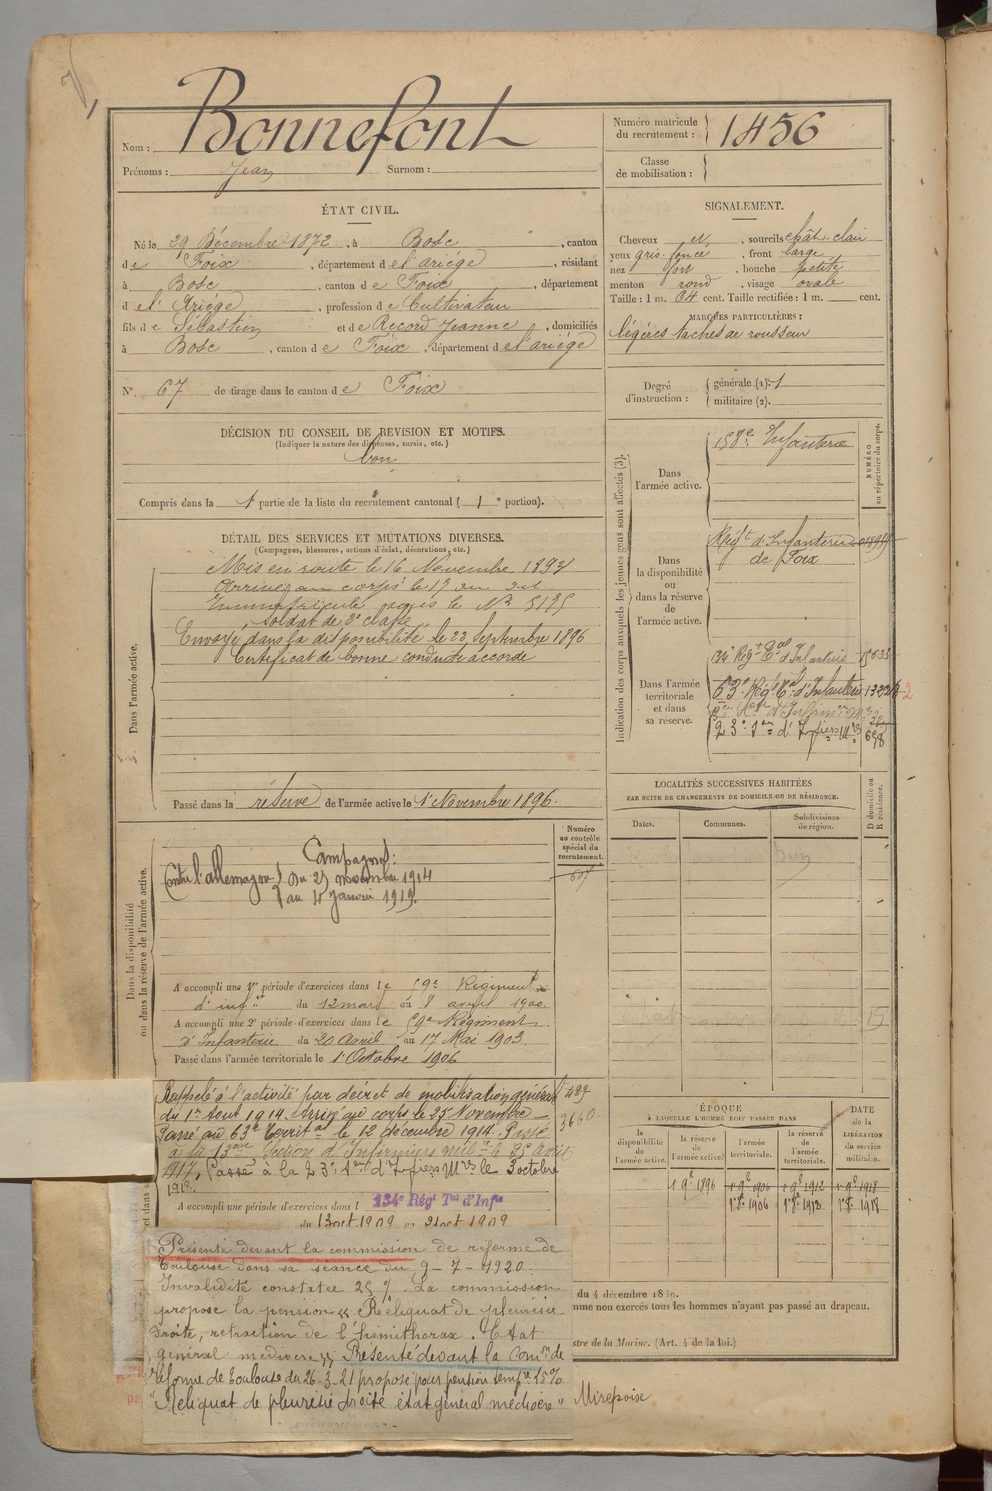 Nom : Bonnefont
Prénoms : Jean Surnom :
Numéro matricule du recrutement : 1456
Classe de mobilisation :
ÉTAT CIVIL.
Né le 29 Décembre 1872, à Bosc, canton
de Foix, département de l'ariège, résidant
à Bosc, canton de Foix, département
de l'Ariège, profession de Cultivateur
fils de Sébastien et de Record Jeanne, domiciliés
à Bosc, canton de Foix, département de l'ariège
N° 67 de tirage dans le canton de Foix
DÉCISION DU CONSEIL DE REVISION ET MOTIFS.
(Indiquer la nature des dispenses, sursis, etc.)
bon
Compris dans la 1e partie de la liste du recrutement cantonal ( 1e portion).
DÉTAIL DES SERVICES ET MUTATIONS DIVERSES.
(Campagnes, blessures, actions d'éclat, décorations, etc.)
Dans l'armée active.
Mis en route le 16 Novembre 1893
Arrivé au corps le 17 au dit
Immatriculé sous le N°
soldat de 2e classe
Envoyé dans la disponibilité le 22 Septembre 1896
Certificat de bonne conduite accordé
Passé dans la réserve de l'armée active le 1er Novembre 1896.
Numéro au contrôle spécial du recrutement.
Dans la disponibilité ou dans la réserve de l'armée active.
Campagnes :
Contre l'allemagne du 25 novembre 1914
au 4 Janvier 1919.
A accompli une 1re période d'exercices dans le 59e Régiment
d'infie du 12 mars au 8 avril 1900
A accompli une 2e période d'exercices dans le 59e Régiment
d'Infanterie du 20 Avril au 17 Mai 1903.
Passé dans l'armée territoriale le 1er Octobre 1906
Rappelé à l'activité par décret de mobilisation générale
du 1er Aout 1914. Arrivé au corps le 25 Novembre
Passé au 63e Territal le 12 décembre 1914. Passé
à la Section d'Infirmiers milres le 25 avril
1917, Passé à la 23e d'Infiers Mres le 3 octobre
1918.
A accompli une période d'exercices dans l 134e Régt Tal d'Infie
du 13 oct 1909 au 21 oct 1909
Présenté devant la commission de réforme de
Toulouse dans sa séance du 9-7-1920.
Invalidité constatée 25 %. La commission
propose la pension "Reliquat de pleurésie
droite, rétraction de l'hémithorax. Etat
général médiocre" Présenté devant la Comon de
réforme de Toulouse du 26-3-21 proposé pour pension tempre 15%
"Reliquat de pleurésie droite état général médiocre"
Mirepoise
SIGNALEMENT.
Cheveux et, sourcils chât. clair
yeux gris foncé, front large
nez fort, bouche petite
menton rond, visage ovale
Taille : 1 m. 64 cent. Taille rectifiée : 1 m. cent.
MARQUES PARTICULIÈRES :
légères taches de rousseur
Degré d'instruction :
générale (1): 1
militaire (2).
Indication des corps auxquels les jeunes gens sont affectés (3).
NUMÉRO au répertoire du corps.
Dans l'armée active.
158e Infanterie
Dans la disponibilité ou dans la réserve de l'armée active.
Régt d'Infanterie
de Foix
Dans l'armée territoriale et dans sa réserve.
134e Régt Tal d'Infanterie
63e Régt Tal d'Infanterie
23e d'Infiers Mres 698
LOCALITÉS SUCCESSIVES HABITÉES
PAR SUITE DE CHANGEMENTS DE DOMICILE OU DE RÉSIDENCE.
Dates. Communes. Subdivisions de région. D domicile ou R résidence.
ÉPOQUE
À LAQUELLE L'HOMME DOIT PASSER DANS
DATE de la LIBÉRATION du service militaire.
la disponibilité de l'armée active.
la réserve de l'armée active.
l'armée territoriale.
la réserve de l'armée territoriale.
1 9bre 1896 1er 9bre 1906 1er 9bre 1912 1er 9bre 1918
1er 8bre 1906 1er 8bre 1912 1er 8bre 1918
du 4 décembre 18
mme non exercés tous les hommes n'ayant pas passé au drapeau.
stre de la Marine. (Art. 4 de la loi.)